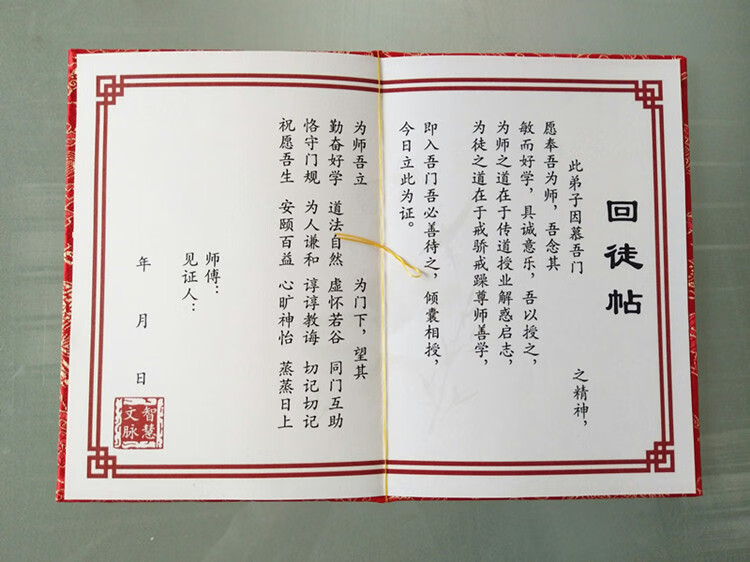 回徒帖
此弟子因慕吾门 之精神，
愿奉吾为师，吾念其
敏而好学，具诚意乐，吾以授之，
为师之道在于传道授业解惑启志，
为徒之道在于戒骄戒躁尊师善学，
即入吾门吾必善待之，倾囊相授，
今日立此为证。
为师吾立 为门下，望其
勤奋好学 道法自然 虚怀若谷 同门互助
恪守门规 为人谦和 谆谆教诲 切记切记
祝愿吾生 安颐百益 心旷神怡 蒸蒸日上
师傅：
见证人：
年 月 日
智慧
文脉